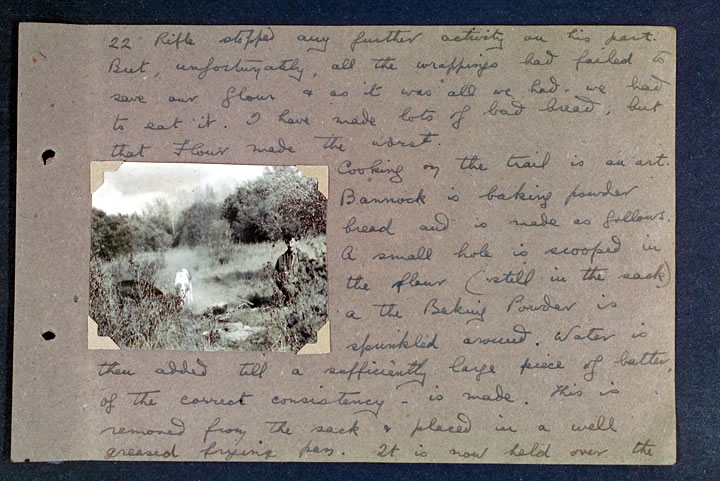 22 Rifle stopped any further activity on his part.
But, unfortunately, all the wrappings had failed to
save our flour & as it was all we had. we had
to eat it. I have made lots of bad bread, but
that Flour made the worst.
Cooking on the trail is an art.
Bannock is baking powder
bread and is made as follows.
A small hole is scooped in
the flour (still in the sack)
a the Baking Powder is
sprinkled around. Water is
then added till a sufficiently large piece of batter,
of the correct consistency - is made. This is
removed from the sack & placed in a well
greased frying pan. It is now held over the